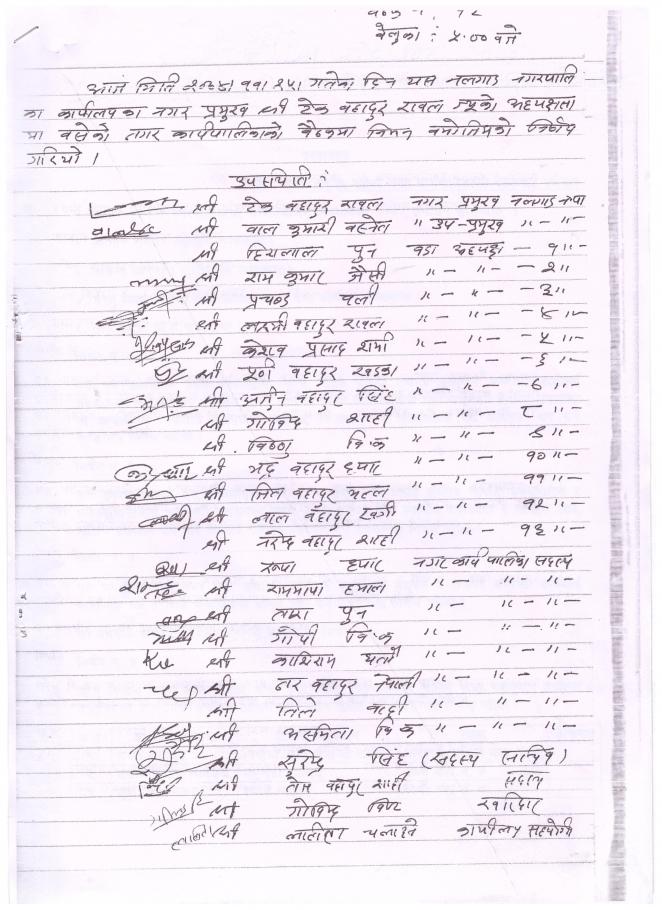 बेलुका : ५.०० बजे
आज मिति २०७५।११।२५। गतेका दिन यस नलगाड नगरपालि
का कार्यालयका नगर प्रमुख श्री टेक बहादुर रावल ज्यूको अध्यक्षता
मा बसेको नगर कार्यपालिकाको बैठकमा निम्न बमोजिमको निर्णय
गरियो ।
उपस्थिति :
श्री टेक बहादुर रावल नगर प्रमुख नलगाड नपा
श्री बाल कुमारी बस्नेत " उप-प्रमुख " - " -
श्री हिरालाल पुन वडा अध्यक्ष - १ " -
श्री राम कुमार जैसी " - " - - २ "
श्री प्रचण्ड चली " - " - - ३ " -
श्री लक्ष्मी बहादुर रावल " - " - - ४ " -
श्री केशव प्रसाद शर्मा " - " - - ५ " -
श्री पूर्ण बहादुर खड्का " - " - - ६ " -
श्री अर्जुन बहादुर सिंह " - " - - ७ " -
श्री गोविन्द शाही " - " - ८ " -
श्री विष्णु वि.क " - " - ९ " -
श्री भद्र बहादुर " - " - १० " -
श्री जित बहादुर मल्ल " - " - ११ " -
श्री लाल बहादुर " - " - १२ " -
श्री नरेन्द्र बहादुर शाही " - " - १३ " -
श्री रूपा नगर कार्यपालिका सदस्य
श्री राममाया हमाल " - " - " -
श्री तारा पुन " - " - " -
श्री गोपी वि.क " - " - " -
श्री काशिराम " - " - " -
श्री बहादुर नेपाली " - " - " -
श्री तिले बादी " - " - " -
श्री अस्मिता वि.क " - " - " -
श्री सुरेन्द्र सिंह (सदस्य सचिव)
श्री बहादुर शाही सदस्य
श्री गोविन्द खरिदार
श्री ललिता कार्यालय सहयोगी